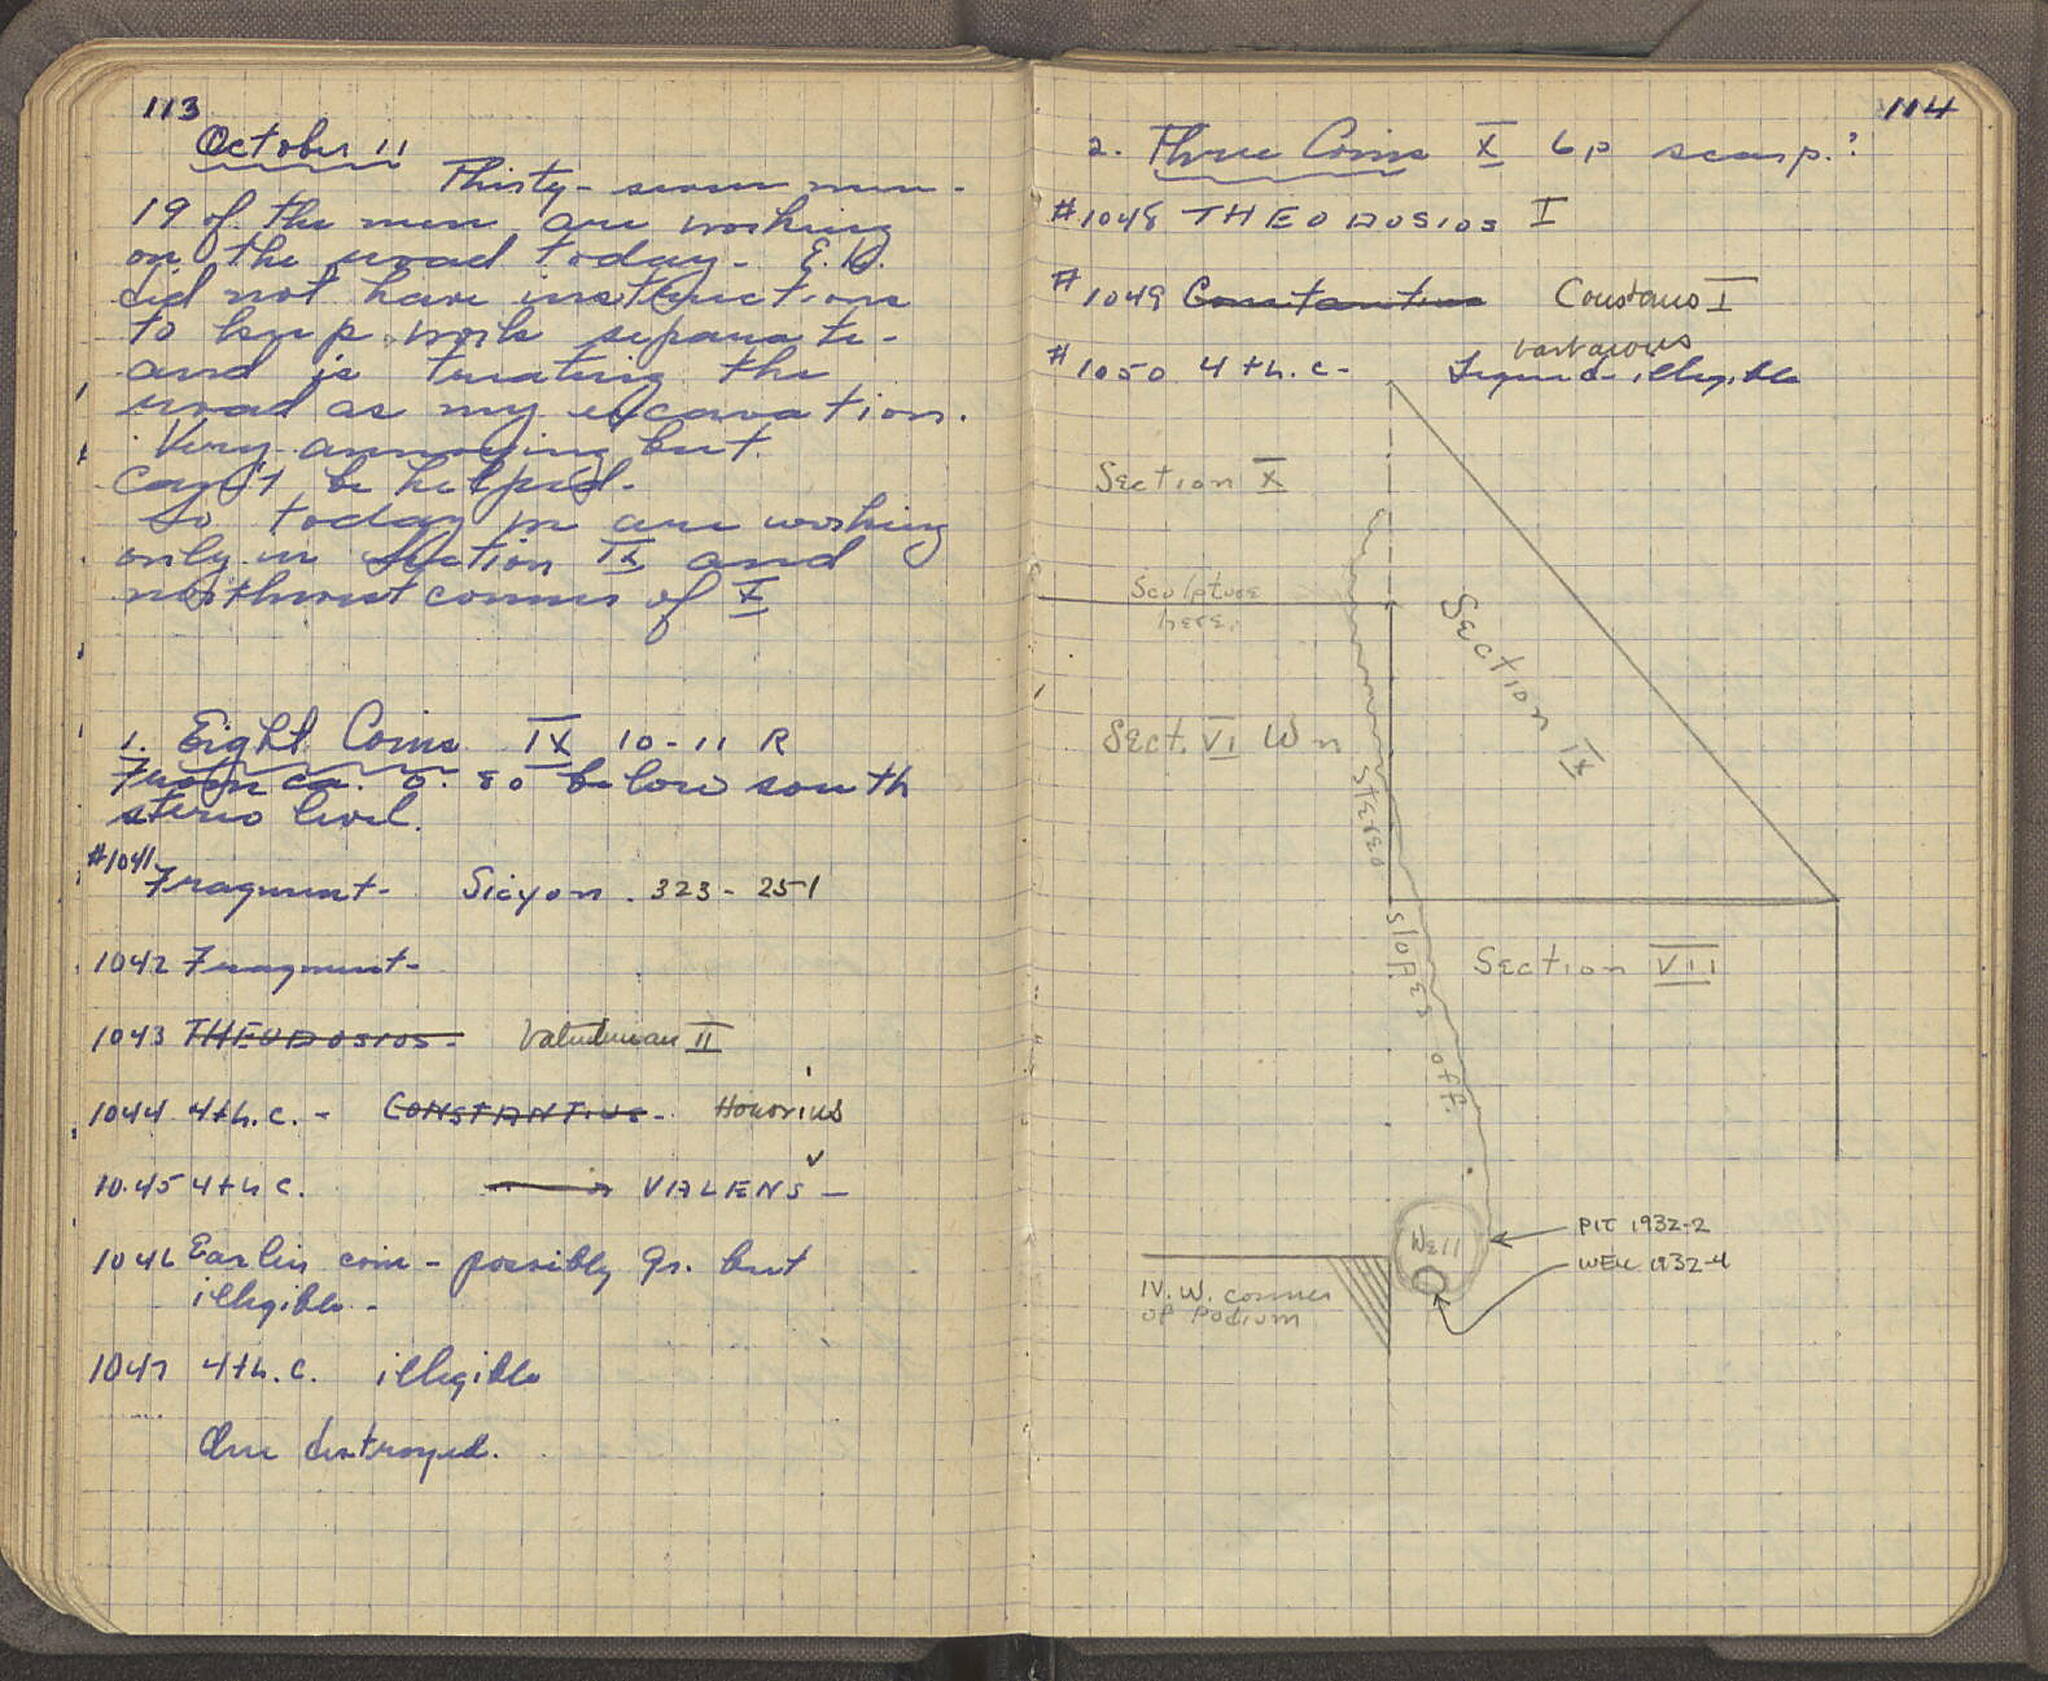 113
October 11
Thirty-seven men-
19 of the men are working
on the road today- E.K.
did not have instructions
to keep work separate-
and is treating the
road as my excavation.
Very annoying but
can't be helped-
So today we are working
only in Section IX and
northwest corner of X
1. Eight Coins IX 10-11 R
From ca. 0.80 below south
stereo level.
#1041
Fragment- Sicyon. 323-251
1042 Fragment-
1043 THEODOSIOS- Valentinian II
1044 4th.c.- CONSTANTIUS- Honorius
1045 4th c. VALENS-
1046 Earlier coin - possibly Gr. but
illegible-
1047 4th.c. illegible
One destroyed.
114
2. Three Coins X 6p scarp.?
#1048 THEODOSIOS I
#1049 Constantius Constans I
barbarous
#1050 4th.c- illegible
Section X
Sculpture
here.
Section IX
Sect. VI Wn
Stereo
slopes off.
Section VII
Well
PIT 1932-2
WELL 1932-4
N.W. corner
of Podium